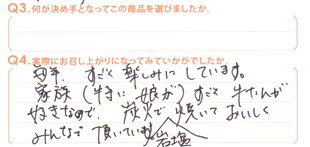 Q3.何が決め手となってこの商品を選びましたか。
Q4.実際にお召し上がりになってみていかがでしたか
毎年、すごく楽しみにしています。
家族(特に娘が)すごく牛たんが
好きなので、炭火で焼いておいしく
みんなで頂いています
岩塩